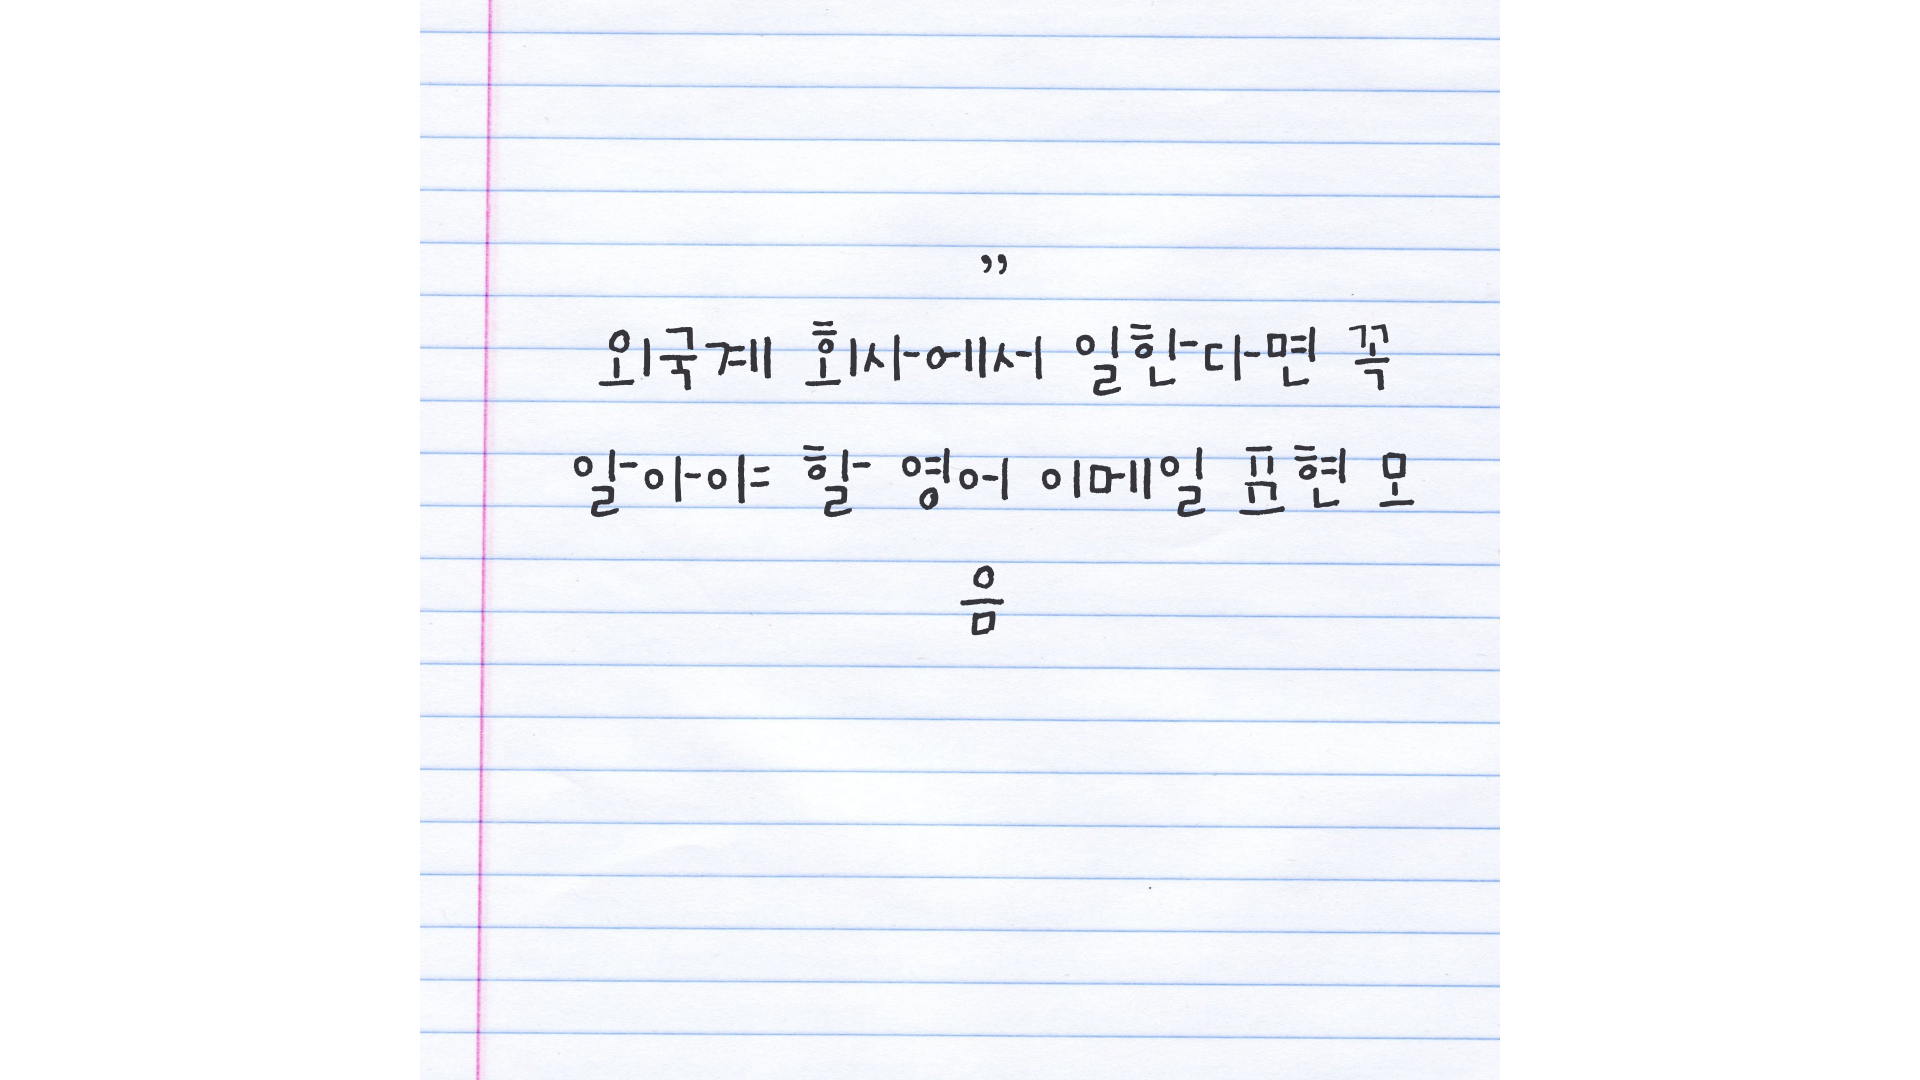 ”
외국계 회사에서 일한다면 꼭
알아야 할 영어 이메일 표현 모
음